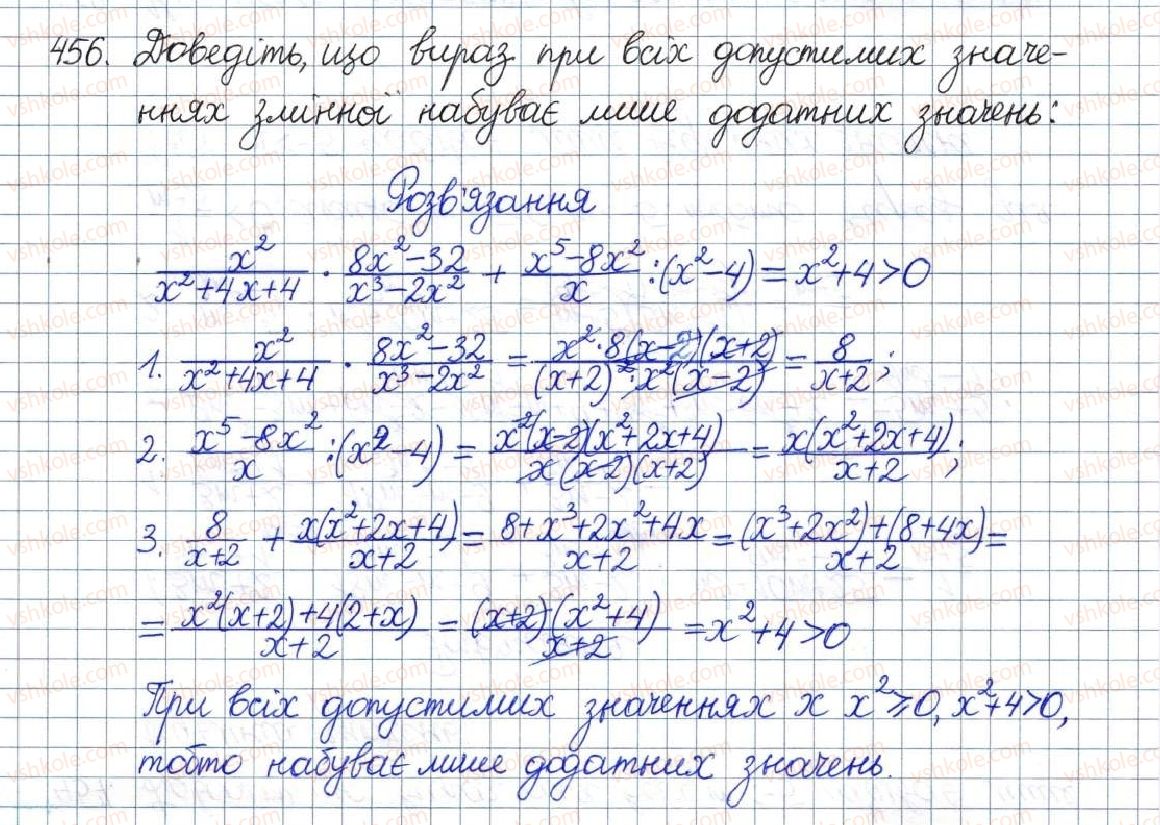 456. Доведіть, що вираз при всіх допустимих значе-
ннях змінної набуває лише додатних значень:
Розв'язання
x²/(x²+4x+4) · (8x²-32)/(x³-2x²) + (x⁵-8x²)/x : (x²-4) = x²+4>0
1. x²/(x²+4x+4) · (8x²-32)/(x³-2x²) = (x²·8(x-2)(x+2))/((x+2)²·x²(x-2)) = 8/(x+2);
2. (x⁵-8x²)/x : (x²-4) = (x²(x-2)(x²+2x+4))/(x(x-2)(x+2)) = (x(x²+2x+4))/(x+2);
3. 8/(x+2) + (x(x²+2x+4))/(x+2) = (8+x³+2x²+4x)/(x+2) = ((x³+2x²)+(8+4x))/(x+2) =
= (x²(x+2)+4(2+x))/(x+2) = ((x+2)(x²+4))/(x+2) = x²+4>0
При всіх допустимих значеннях x x²≥0, x²+4>0,
тобто набуває лише додатних значень.